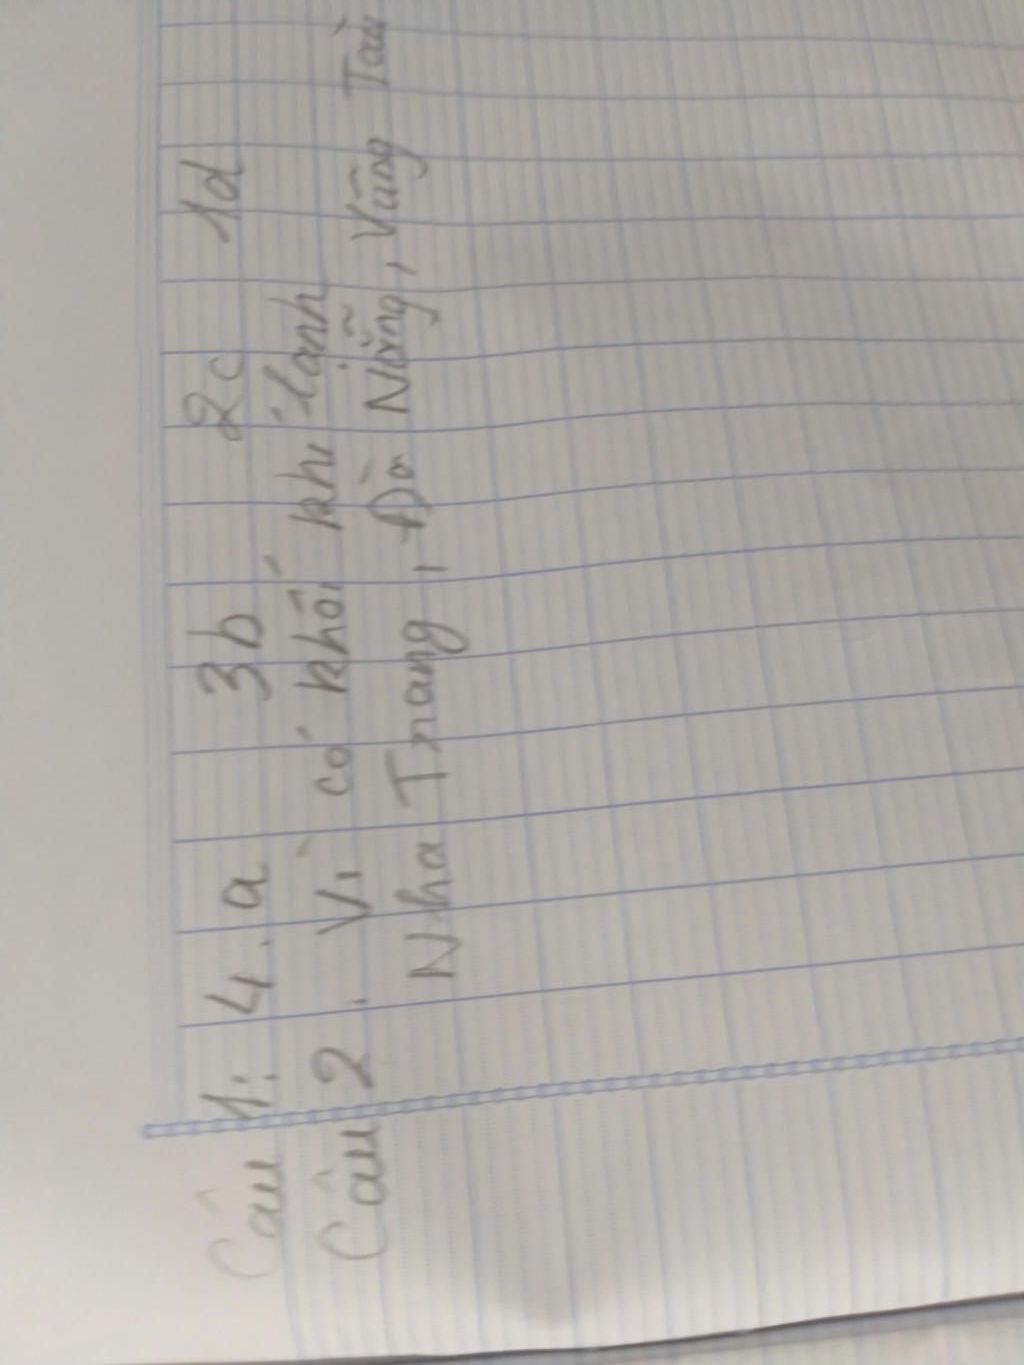 Câu 1: 4.a 3b 2c 1d
Câu 2. Vì có khối khí lạnh
Nha Trang, Đà Nẵng, Vũng Tàu